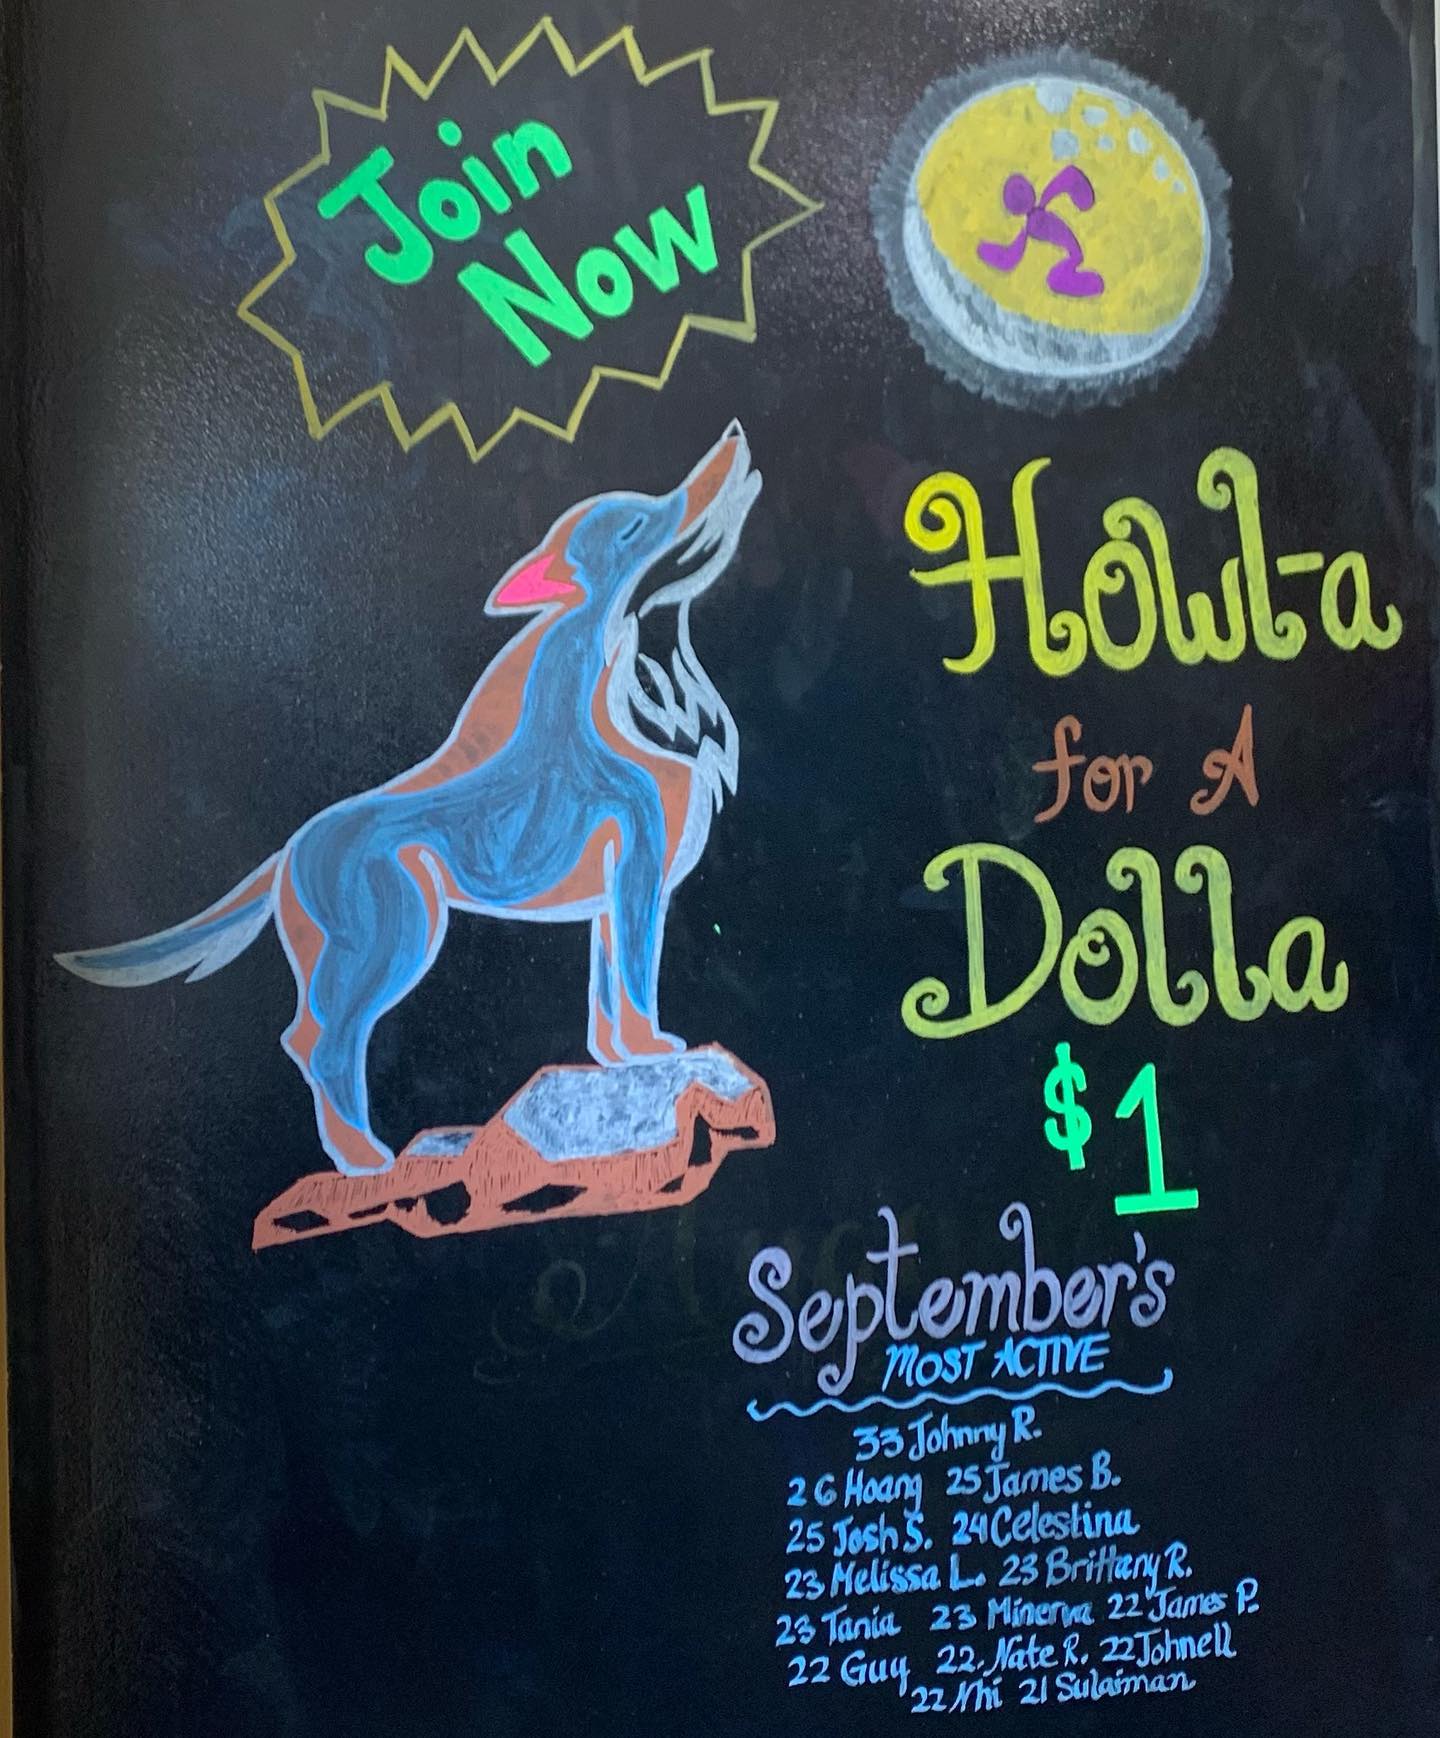 Join
Now
Howl-a
for A
Dolla
$1
September's
MOST ACTIVE
33 Johnny R.
26 Hoang 25 James B.
25 Josh S. 24 Celestina
23 Melissa L. 23 Brittany R.
23 Tania 23 Minerva 22 James P.
22 Guy 22. Nate R. 22 Johnell
22 Nhi 21 Sulaiman